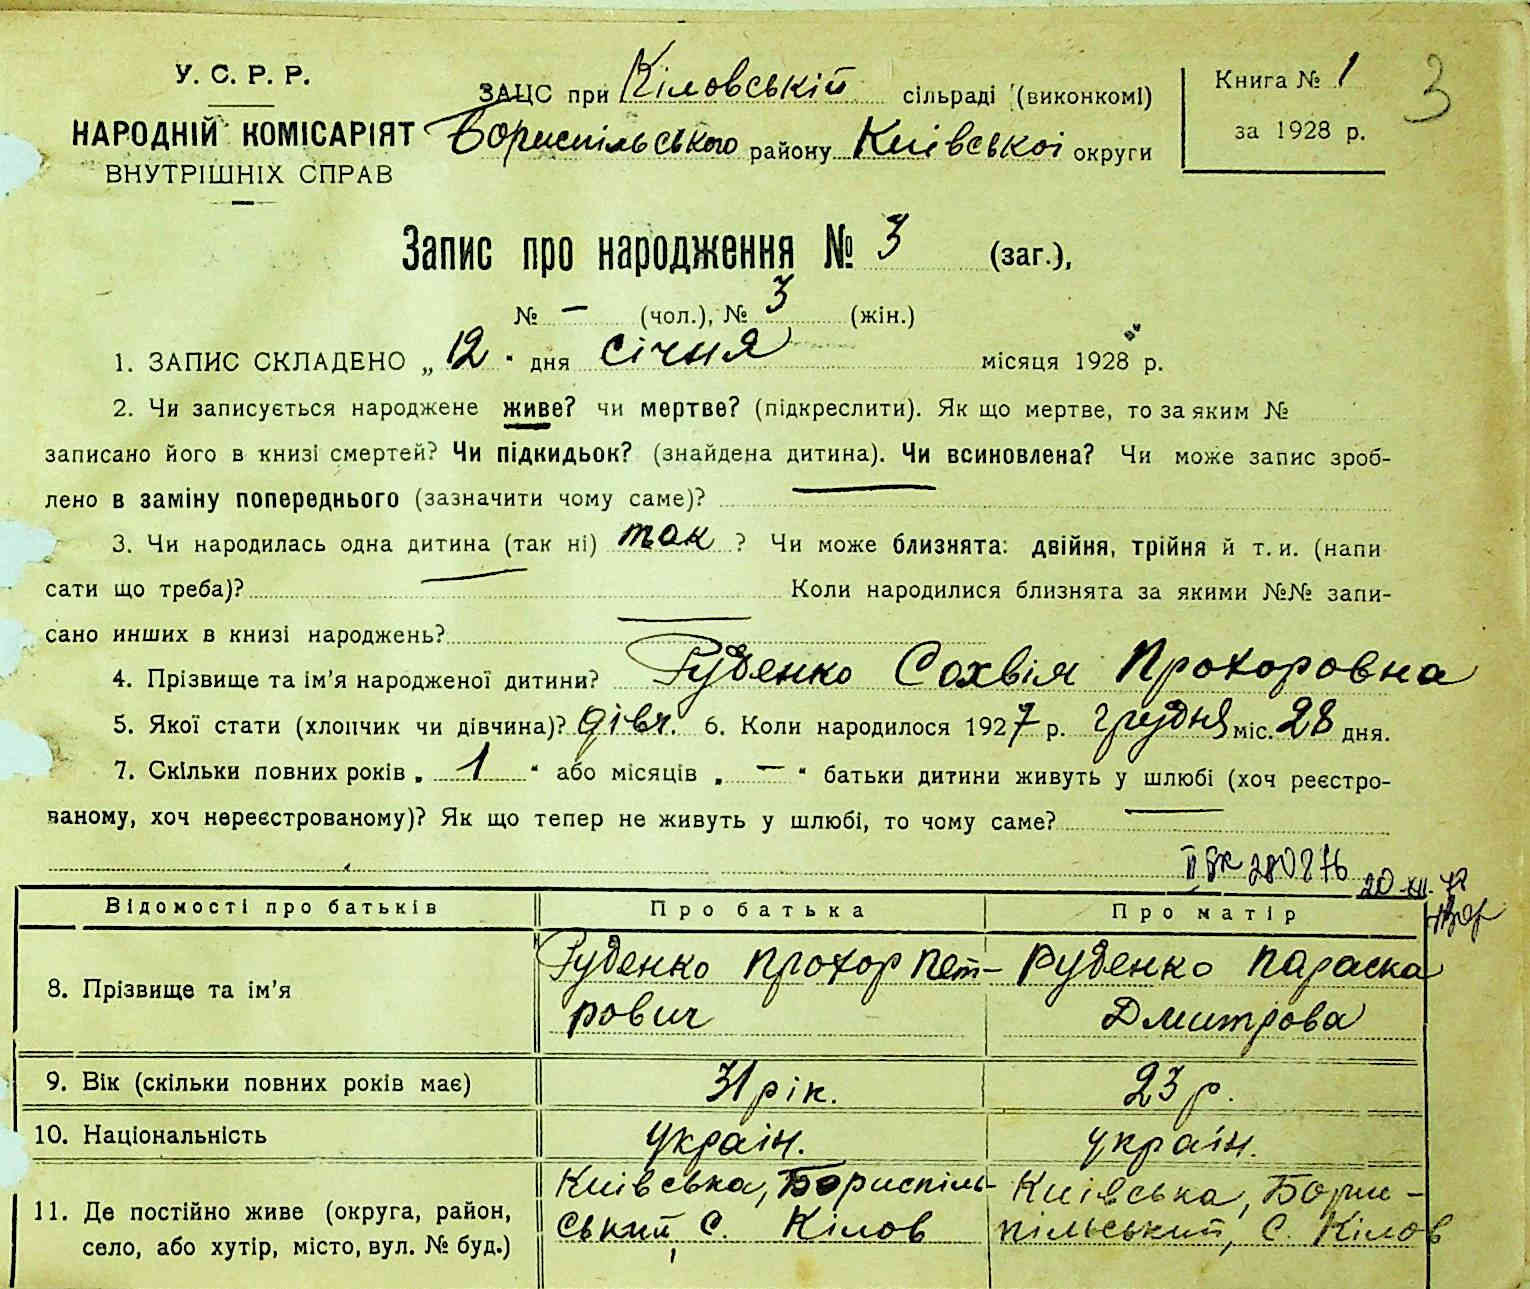 У. С. Р. Р.
НАРОДНІЙ КОМІСАРІЯТ
ВНУТРІШНІХ СПРАВ
ЗАЦС при Кіловській сільраді (виконкомі)
Бориспільського району Київської округи
Книга № 1
за 1928 р.
3
Запис про народження № 3 (заг.),
№ — (чол.), № 3 (жін.)
1. ЗАПИС СКЛАДЕНО „ 12 " дня січня місяця 1928 р.
2. Чи записується народжене живе? чи мертве? (підкреслити). Як що мертве, то за яким №
записано його в книзі смертей? Чи підкидьок? (знайдена дитина). Чи всиновлена? Чи може запис зроб-
лено в заміну попереднього (зазначити чому саме)? —
3. Чи народилась одна дитина (так ні) так ? Чи може близнята: двійня, трійня й т. и. (напи
сати що треба)? — Коли народилися близнята за якими №№ запи-
сано инших в книзі народжень? —
4. Прізвище та ім'я народженої дитини? Руденко Сохвія Прохоровна
5. Якої стати (хлопчик чи дівчина)? дівч. 6. Коли народилося 1927 р. грудня міс. 28 дня.
7. Скільки повних років „ 1 " або місяців „ — " батьки дитини живуть у шлюбі (хоч реєстро-
ваному, хоч нереєстрованому)? Як що тепер не живуть у шлюбі, то чому саме? —
Відомості про батьків Про батька Про матір
8. Прізвище та ім'я Руденко Прохор Пет- Руденко Параска
рович Дмитрова
9. Вік (скільки повних років має) 31 рік. 23 р.
10. Національність україн. україн.
11. Де постійно живе (округа, район, Київська, Бориспіль- Київська, Борис-
село, або хутір, місто, вул. № буд.) ський, с. Кілов пільський, с. Кілов